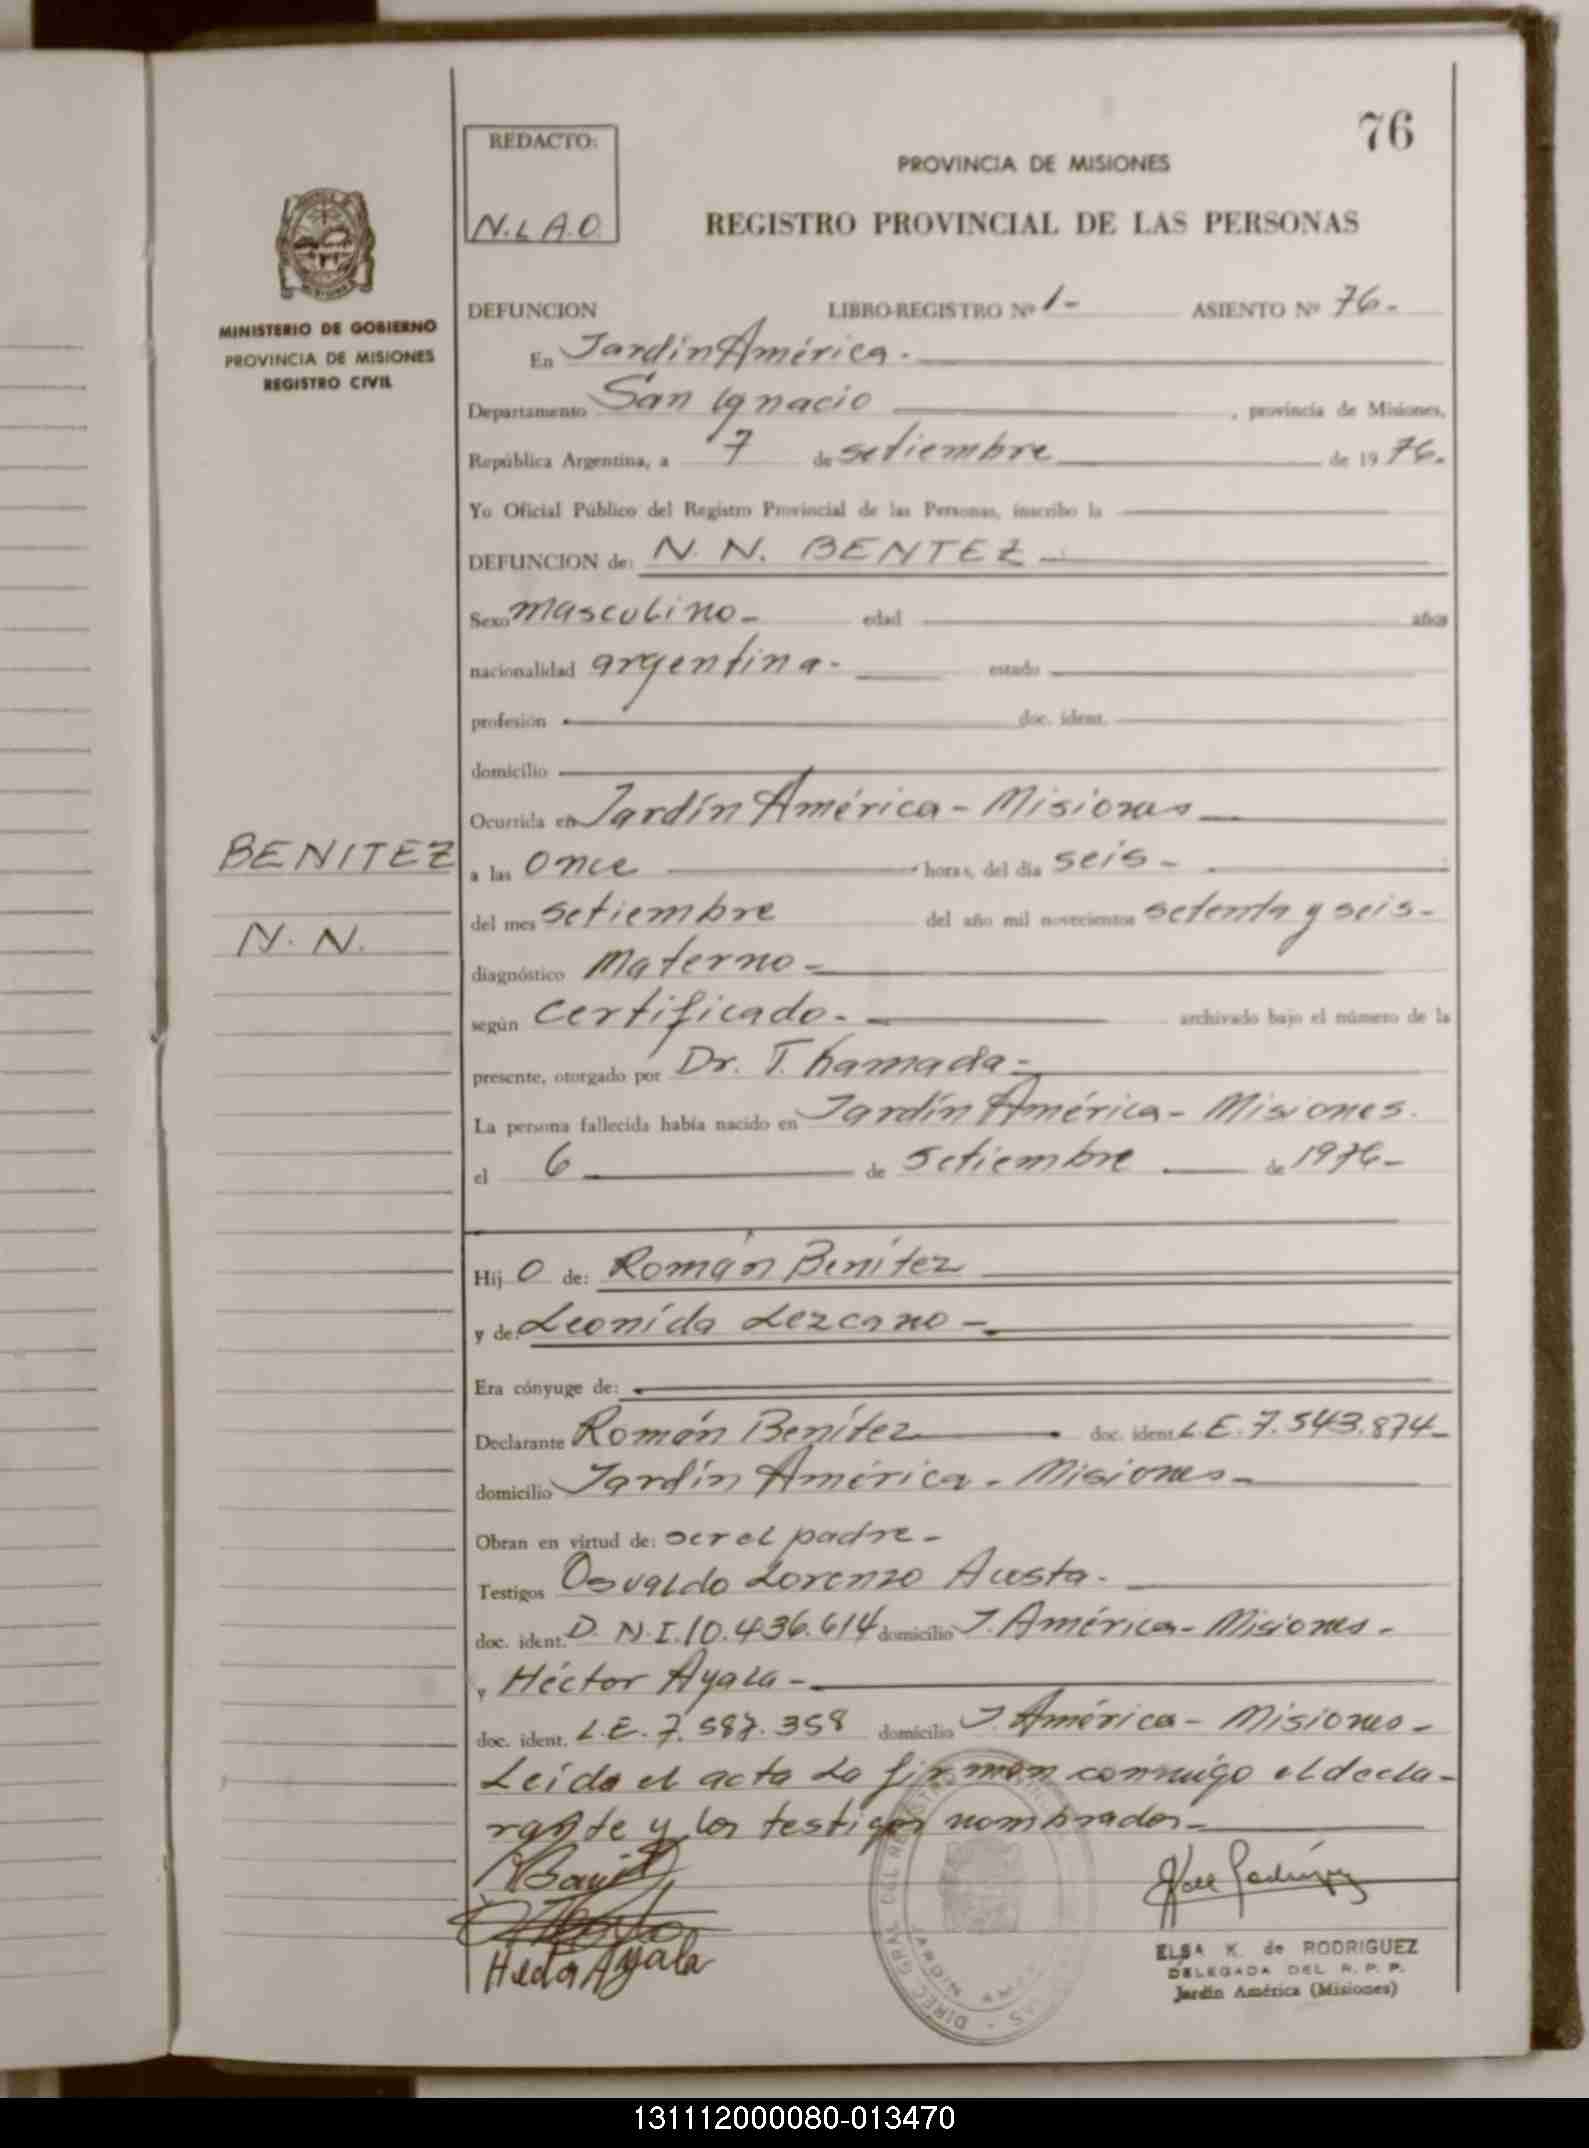 76
REDACTO:
N.L A.O.
PROVINCIA DE MISIONES
REGISTRO PROVINCIAL DE LAS PERSONAS
MINISTERIO DE GOBIERNO
PROVINCIA DE MISIONES
REGISTRO CIVIL
DEFUNCION LIBRO-REGISTRO Nº 1- ASIENTO Nº 76.-
En Jardín América.
Departamento San Ignacio, provincia de Misiones,
República Argentina, a 7 de setiembre de 1976.
Yo Oficial Público del Registro Provincial de las Personas, inscribo la
DEFUNCION de: N. N. BENTEZ
Sexo masculino- edad años
nacionalidad argentina- estado
profesión doc. ident.
domicilio
Ocurrida en Jardín América - Misiones
BENITEZ
N. N.
a las once horas, del día seis-
del mes setiembre del año mil novecientos setenta y seis-
diagnóstico Materno-
según certificado.- archivado bajo el número de la
presente, otorgado por Dr. T. hamada-
La persona fallecida había nacido en Jardín América - Misiones.
el 6 de setiembre de 1976-
Hij o de: Román Benítez
y de: Leonída Lezcano-
Era cónyuge de:
Declarante Román Benítez doc. ident. L.E. 7.543.874-
domicilio Jardín América - Misiones-
Obran en virtud de: ser el padre-
Testigos Osvaldo Lorenzo Acosta.
doc. ident. D.N.I. 10.436.614 domicilio J. América - Misiones-
y Héctor Ayala-
doc. ident. L.E. 7.587.358 domicilio J. América - Misiones-
Leída el acta la firman conmigo el decla-
rante y los testigos nombrados-
Hector Ayala
ELSA K. de RODRIGUEZ
DELEGADA DEL R. P. P.
Jardín América (Misiones)
131112000080-013470